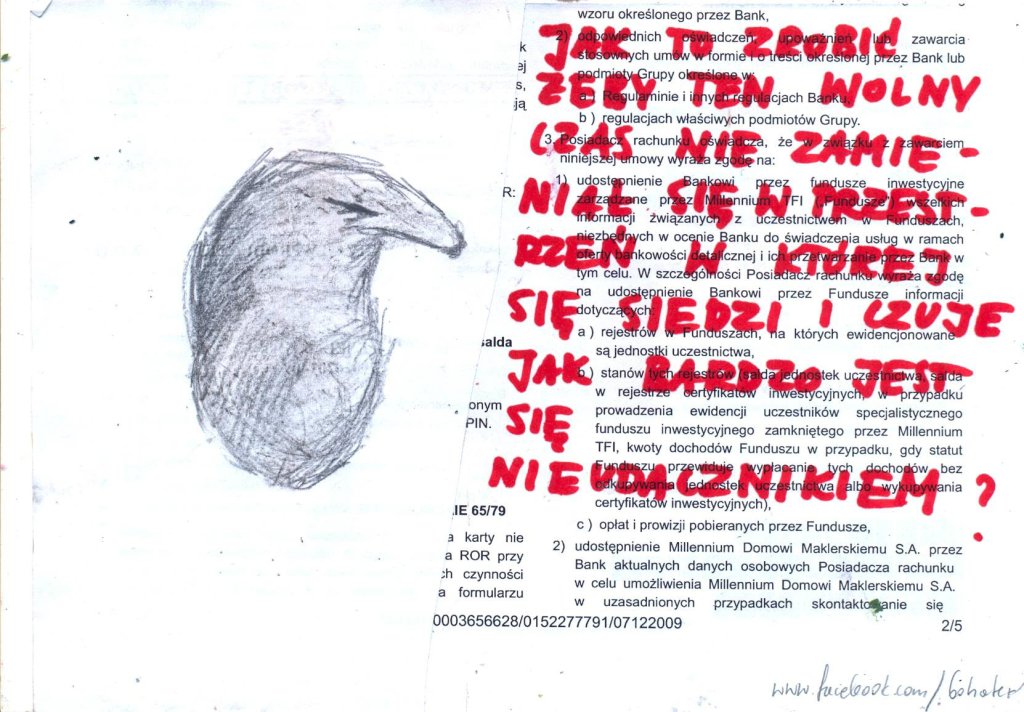 wzoru określonego przez Bank,
2) odpowiednich oświadczeń, upoważnień lub zawarcia
stosownych umów w formie i o treści określonej przez Bank lub
podmioty Grupy określone w:
a ) Regulaminie i innych regulacjach Banku,
b ) regulacjach właściwych podmiotów Grupy.
3. Posiadacz rachunku oświadcza, że w związku z zawarciem
niniejszej umowy wyraża zgodę na:
1) udostępnienie Bankowi przez fundusze inwestycyjne
zarządzane przez Millennium TFI („Fundusze") wszelkich
informacji związanych z uczestnictwem w Funduszach,
niezbędnych w ocenie Banku do świadczenia usług w ramach
oferty bankowości detalicznej i ich przetwarzanie przez Bank w
tym celu. W szczególności Posiadacz rachunku wyraża zgodę
na udostępnienie Bankowi przez Fundusze informacji
dotyczących:
a ) rejestrów w Funduszach, na których ewidencjonowane
są jednostki uczestnictwa,
b ) stanów tych rejestrów (salda jednostek uczestnictwa, salda
w rejestrze certyfikatów inwestycyjnych, w przypadku
prowadzenia ewidencji uczestników specjalistycznego
funduszu inwestycyjnego zamkniętego przez Millennium
TFI, kwoty dochodów Funduszu w przypadku, gdy statut
Funduszu przewiduje wypłacanie tych dochodów bez
odkupywania jednostek uczestnictwa albo wykupywania
certyfikatów inwestycyjnych),
c ) opłat i prowizji pobieranych przez Fundusze,
2) udostępnienie Millennium Domowi Maklerskiemu S.A. przez
Bank aktualnych danych osobowych Posiadacza rachunku
w celu umożliwienia Millennium Domowi Maklerskiemu S.A.
w uzasadnionych przypadkach skontaktowanie się
JAK TO ZROBIĆ
ŻEBY TEN WOLNY
CZAS NIE ZAMIE-
NIAŁ SIĘ W PRZEST-
RZEŃ W KTÓREJ
SIĘ SIEDZI I CZUJE
JAK BARDZO JEST
SIĘ
NIEUDACZNIKIEM ?
R:
salda
onym
PIN.
IE 65/79
a karty nie
a ROR przy
ch czynności
a formularzu
0003656628/0152277791/07122009
2/5
www.facebook.com/